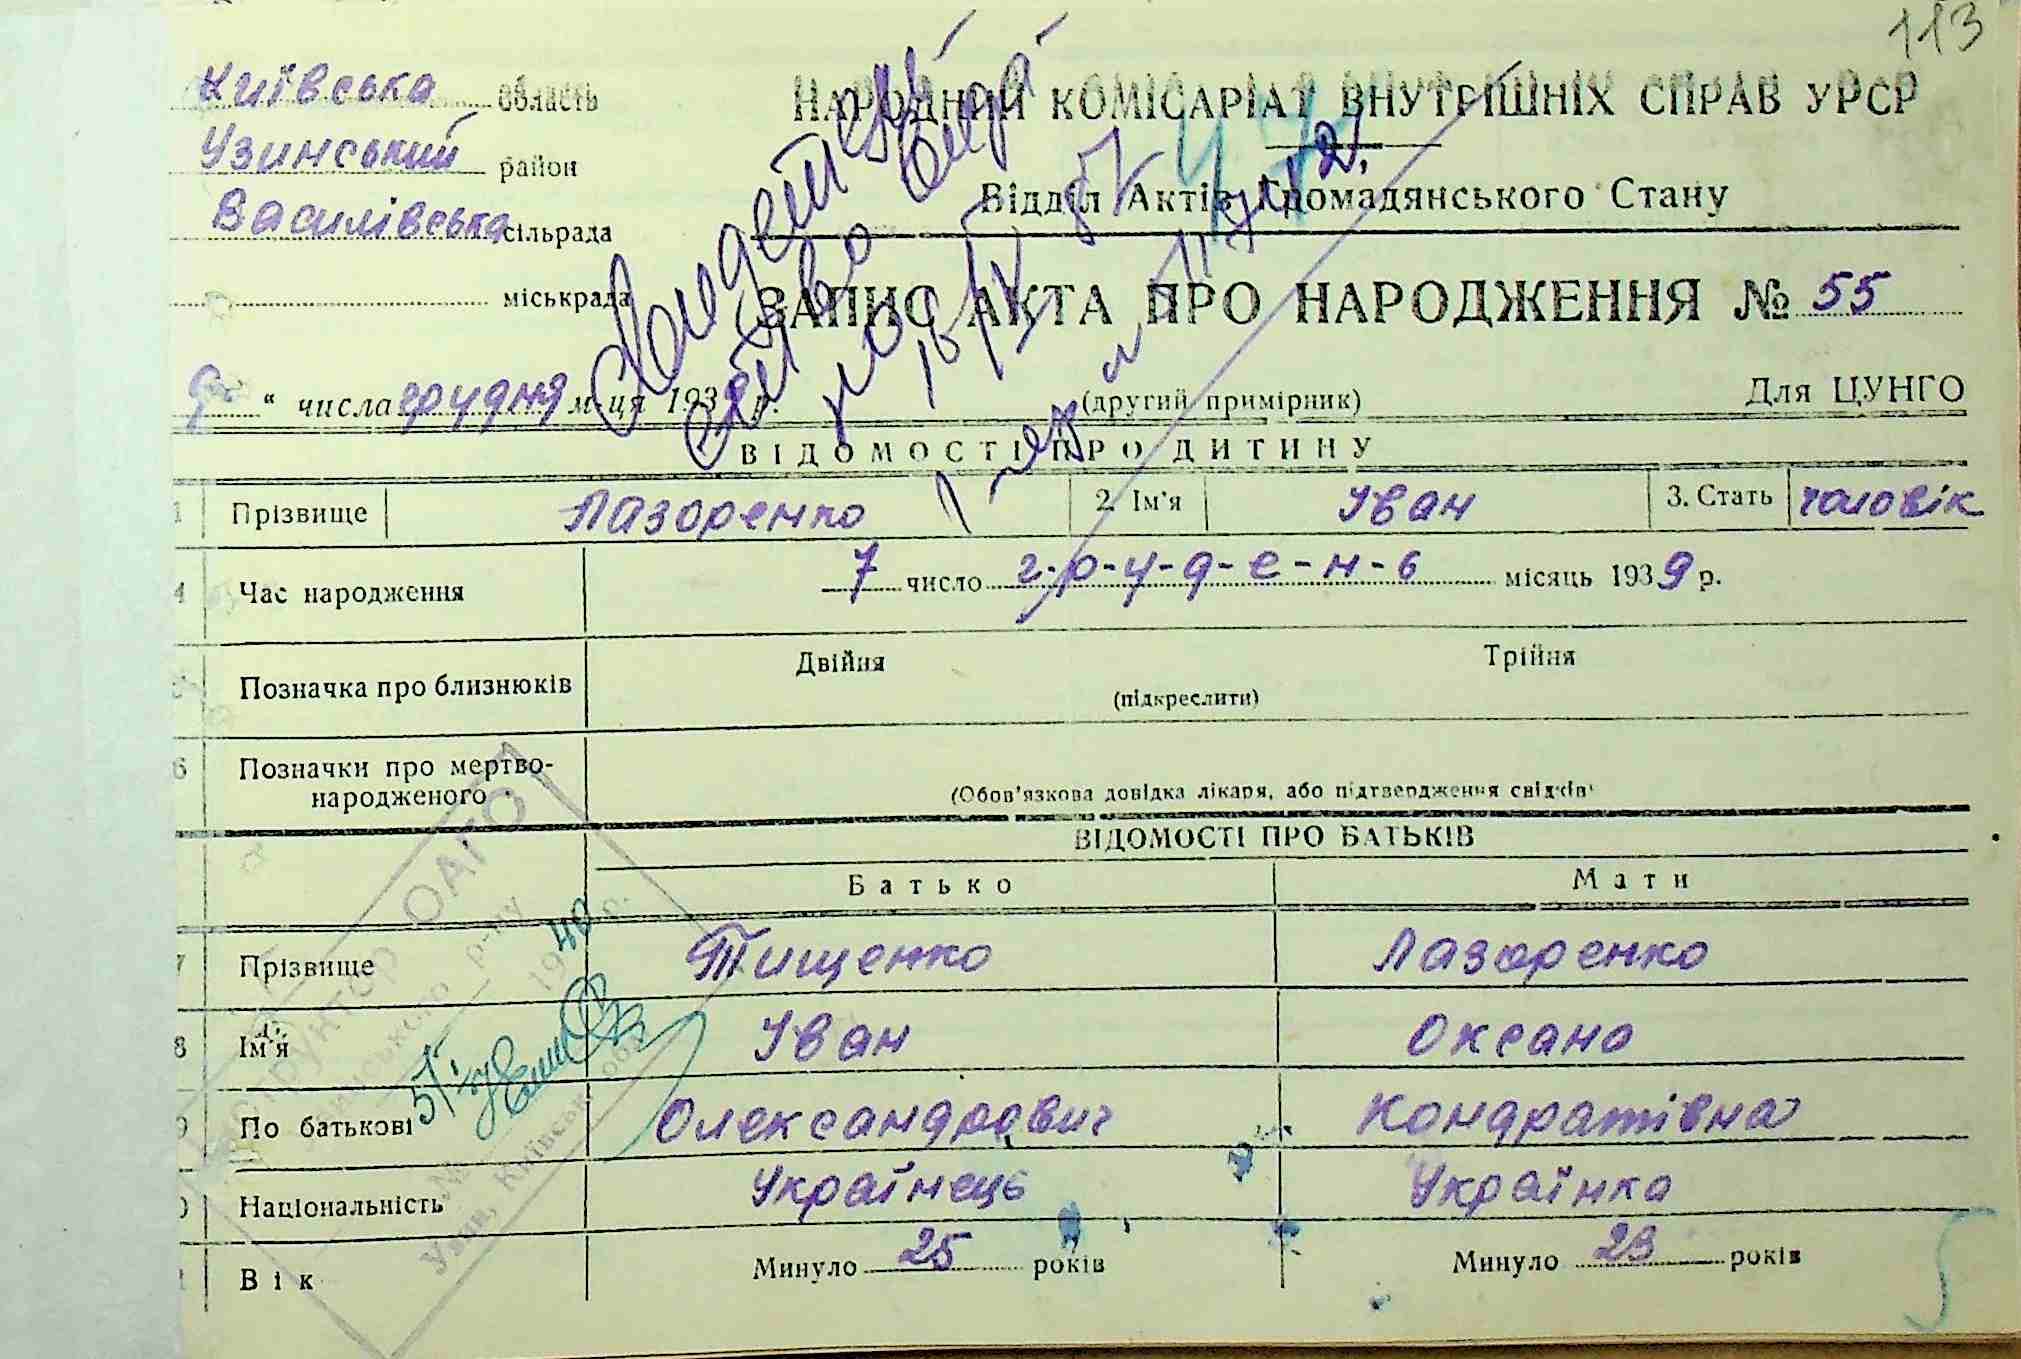 113
Київська область
Узинський район
Василівська сільрада
міськрада
НАРОДНИЙ КОМІСАРІАТ ВНУТРІШНІХ СПРАВ УРСР
Відділ Актів Громадянського Стану
ЗАПИС АКТА ПРО НАРОДЖЕННЯ № 55
9 " числа грудня м-ця 1939 р.
(другий примірник)
Для ЦУНГО
ВІДОМОСТІ ПРО ДИТИНУ
1 Прізвище Лазоренко 2. Ім'я Іван 3. Стать чоловік
4 Час народження 7 число г-р-у-д-е-н-ь місяць 1939 р.
Позначка про близнюків Двійня Трійня
(підкреслити)
6 Позначки про мертво-
народженого (Обов'язкова довідка лікаря, або підтвердження свідків)
ВІДОМОСТІ ПРО БАТЬКІВ
Батько Мати
7 Прізвище Тищенко Лазоренко
8 Ім'я Іван Оксана
9 По батькові Олександрович Кондратівна
0 Національність Українець Українка
Вік Минуло 25 років Минуло 23 років
ОАГО
р-ну
1940 р.